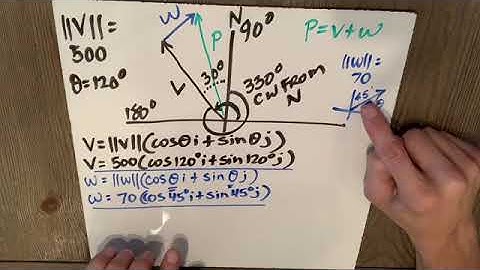 ||V||=
500
θ=120°
W
P
V
N
90°
30°
330°
CW FROM
N
180°
P=V+W
||W||=
70
45°
V=||V||(cosθi+sinθj)
V=500(cos120°i+sin120°j)
W=||W||(cosθi+sinθj)
W=70(cos45°i+sin45°j)